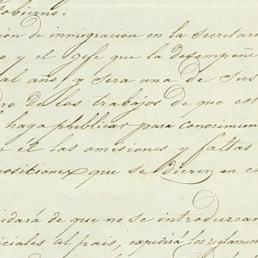 obierno.
ion de inmigracion en la Secretar
o y el gefe que la desempeñe
al año y sera una de sus
ro de los trabajos de que est
haga publicar para conocimien
r en las omisiones y faltas
posiciones que se dieren en e
idará de que no se introduzcan
iciales al pais, expedirá los reglamen